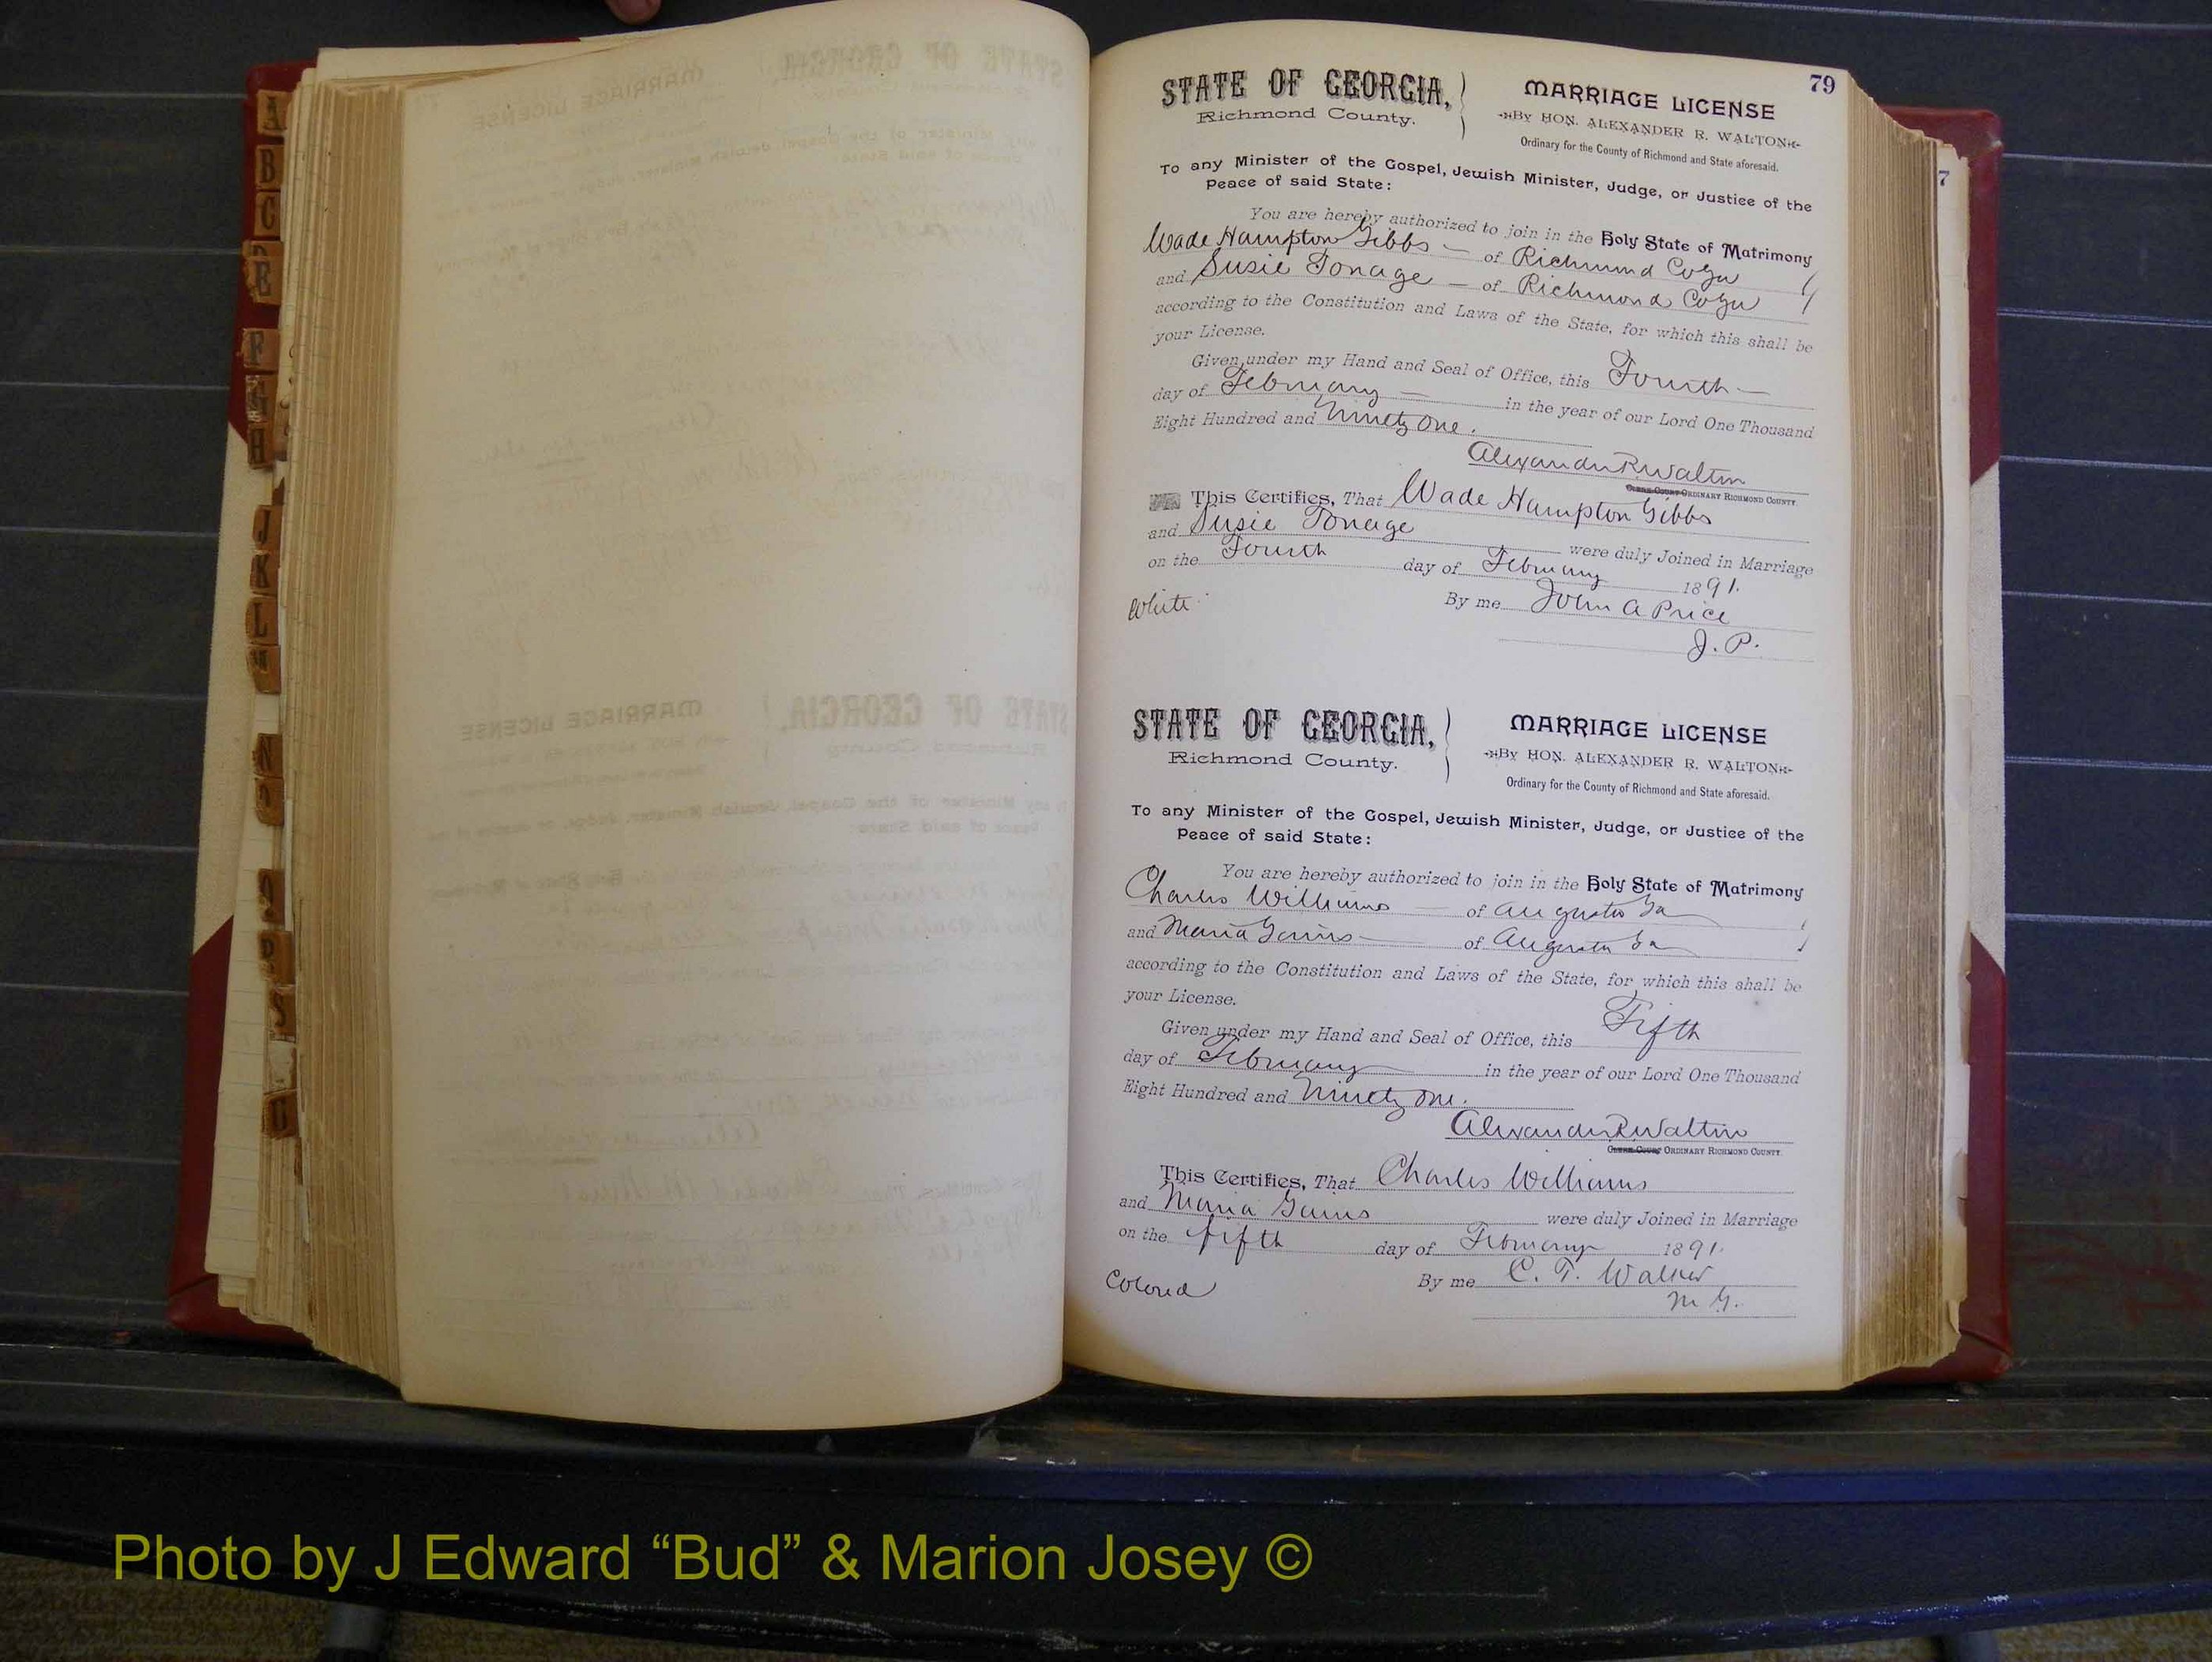 79
STATE OF GEORGIA,
Richmond County.
MARRIAGE LICENSE
By HON. ALEXANDER R. WALTON
Ordinary for the County of Richmond and State aforesaid.
To any Minister of the Gospel, Jewish Minister, Judge, or Justice of the
Peace of said State:
You are hereby authorized to join in the Holy State of Matrimony
Wade Hampton Gibbs — of Richmond Co Ga
and Susie Tonage — of Richmond Co Ga
according to the Constitution and Laws of the State, for which this shall be
your License.
Given under my Hand and Seal of Office, this Fourth —
day of February — in the year of our Lord One Thousand
Eight Hundred and Ninety One.
Alexander R Walton
Clerk Court ORDINARY RICHMOND COUNTY.
This Certifies, That Wade Hampton Gibbs
and Susie Tonage were duly Joined in Marriage
on the Fourth day of February 1891.
White By me John A Price
J. P.
STATE OF GEORGIA,
Richmond County.
MARRIAGE LICENSE
By HON. ALEXANDER R. WALTON
Ordinary for the County of Richmond and State aforesaid.
To any Minister of the Gospel, Jewish Minister, Judge, or Justice of the
Peace of said State:
You are hereby authorized to join in the Holy State of Matrimony
Charles Williams — of Augusta Ga
and Maria Gains — of Augusta Ga
according to the Constitution and Laws of the State, for which this shall be
your License.
Given under my Hand and Seal of Office, this Fifth
day of February in the year of our Lord One Thousand
Eight Hundred and Ninety One.
Alexander R Walton
Clerk Court ORDINARY RICHMOND COUNTY.
This Certifies, That Charles Williams
and Maria Gains were duly Joined in Marriage
on the fifth day of February 1891.
Colored By me C. T. Walker
M G.
A
B
C
E
F
H
J
K
L
M
N
O
P
S
7
Photo by J Edward “Bud” & Marion Josey ©